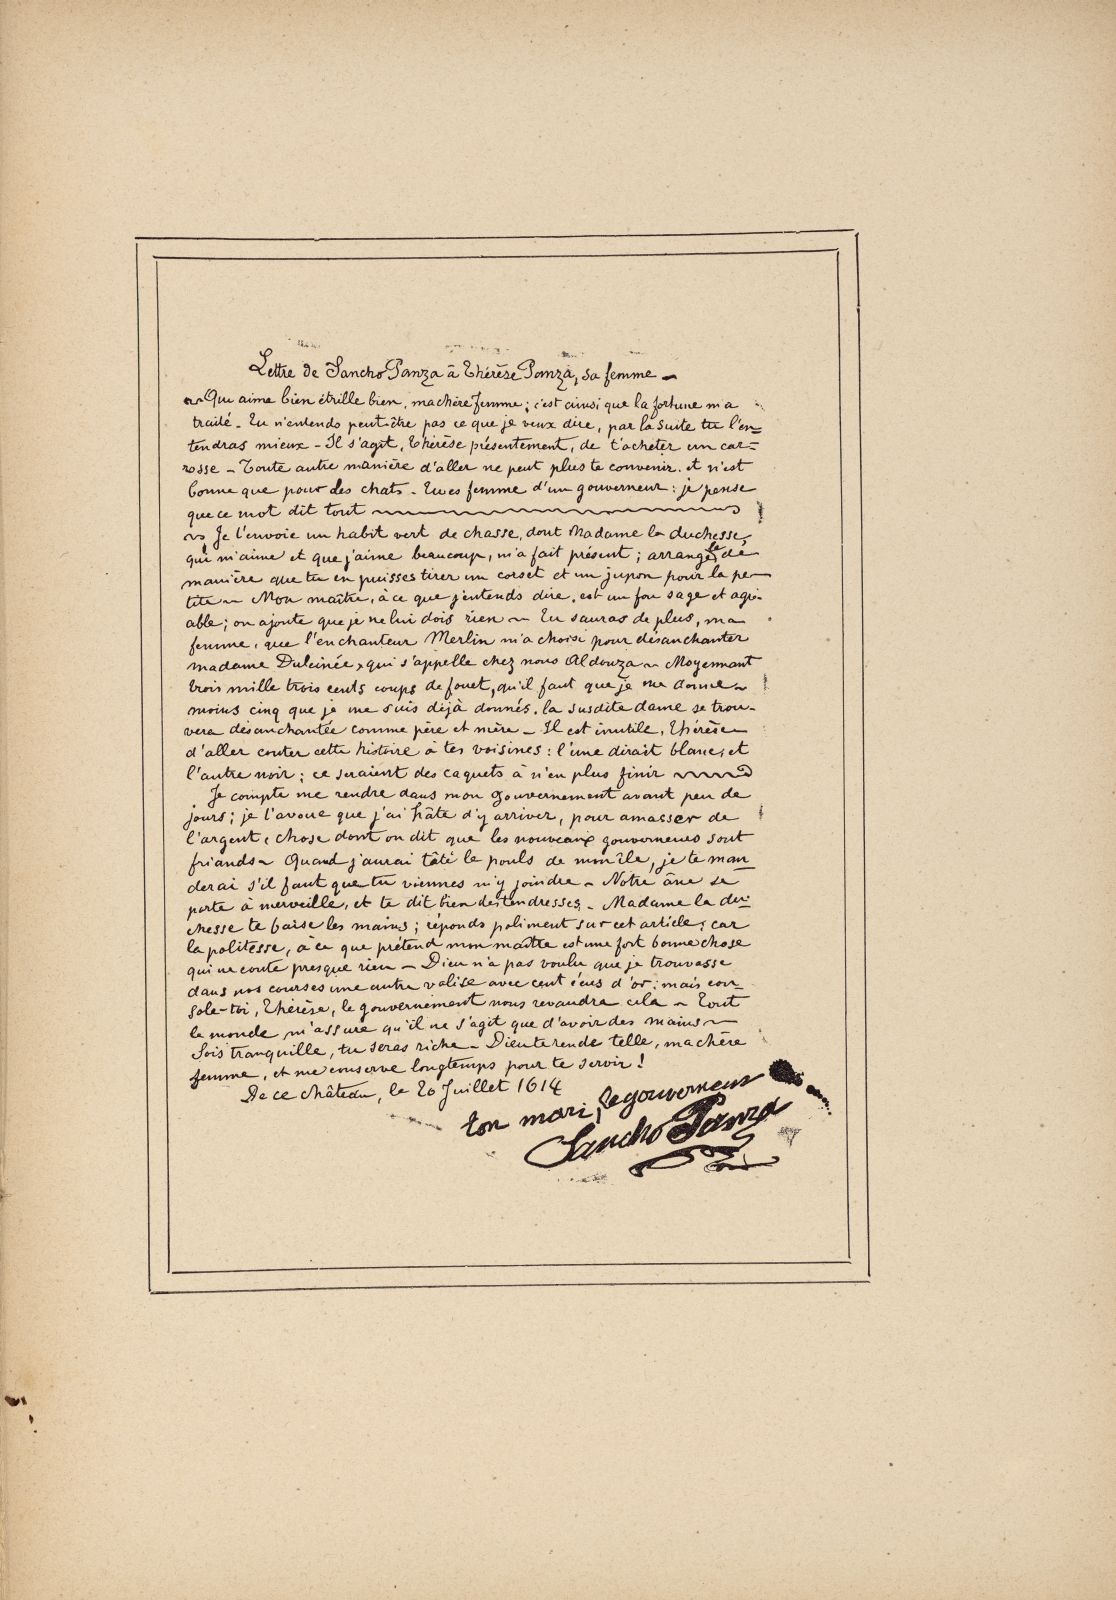 Lettre de Sancho Panza à Thérèse Panza, sa femme –
~ Qui aime bien étrille bien, ma chère femme ; c'est ainsi que la fortune m'a
traité – Tu n'entends peut-être pas ce que je veux dire, par la suite tu l'en-
tendras mieux – Il s'agit, Thérèse présentement, de t'acheter un car-
rosse – Toute autre manière d'aller ne peut plus te convenir, et n'est
bonne que pour des chats – Tu es femme d'un gouverneur : je pense
que ce mot dit tout
~ Je t'envoie un habit vert de chasse, dont Madame la duchesse,
qui m'aime et que j'aime beaucoup, m'a fait présent ; arrange le de
manière que tu en puisses tirer un corset et un jupon pour la pe-
tite ~ Mon maître, à ce que j'entends dire, est un fou sage et agré-
able ; on ajoute que je ne lui dois rien ~ Tu sauras de plus, ma
femme, que l'enchanteur Merlin m'a choisi pour désanchanter
madame Dulcinée, qui s'appelle chez nous Aldouza ~ Moyennant
trois mille trois cents coups de fouet, qu'il faut que je me donne ~
moins cinq que je me suis déjà donnés, la susdite dame se trou-
vera désanchantée comme père et mère – Il est inutile, Thérèse
d'aller conter cette histoire à tes voisines : l'une dirait blanc, et
l'autre noir ; ce seraient des caquets à n'en plus finir
Je compte me rendre dans mon gouvernement avant peu de
jours ; je t'avoue que j'ai hâte d'y arriver, pour amasser de
l'argent, chose dont on dit que les nouveaux gouverneurs sont
friands ~ Quand j'aurai tâté le pouls de mon île, je te man-
derai s'il faut que tu viennes m'y joindre – Notre âne se
porte à merveille, et te dit bien des tendresses – Madame la du-
chesse te baise les mains ; réponds poliment sur cet article, car
la politesse, à ce que prétend mon maître est une fort bonne chose
qui ne coute presque rien – Dieu n'a pas voulu que je trouvasse
dans nos courses une autre valise avec cent écus d'or ; mais con-
sole-toi, Thérèse, le gouvernement nous revaudra cela ~ Tout
le monde m'assure qu'il ne s'agit que d'avoir des mains ~
Sois tranquille, tu seras riche – Dieu te rende telle, ma chère
femme, et me conserve longtemps pour te servir !
De ce château, le 20 Juillet 1614
ton mari, le gouverneur
Sancho Panza